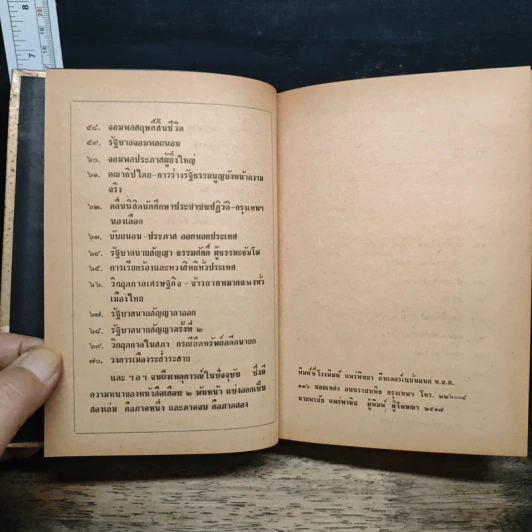 ๕๘. จอมพลสฤษดิ์สิ้นชีวิต
๕๙. รัฐบาลจอมพลถนอม
๖๐. จอมพลประภาสผู้ยิ่งใหญ่
๖๑. คณาธิปไตย-การร่างรัฐธรรมนูญบังหน้าความ
จริง
๖๒. คลื่นนิสิตนักศึกษาประชาชนปฏิวัติ-กรุงเทพฯ
นองเลือด
๖๓. ขับถนอม-ประภาส ออกนอกประเทศ
๖๔. รัฐบาลนายสัญญา ธรรมศักดิ์ ผู้ธรรมะธัมโม
๖๕. การเรียกร้องและทวงสิทธิทั่วประเทศ
๖๖. วิกฤตกาลเศรษฐกิจ-ข้าวยากหมากแพงทั่ว
เมืองไทย
๖๗. รัฐบาลนายสัญญาลาออก
๖๘. รัฐบาลนายสัญญาครั้งที่ ๒
๖๙. วิกฤตกาลในสภา กรณียึดทรัพย์อดีตนายก
๗๐. วงการเมืองระส่ำระสาย
และ ฯลฯ จนถึงเหตุการณ์ในปัจจุบัน ซึ่งมี
ความหนาของหนังสือเกือบ ๒ พันหน้า แบ่งออกเป็น
สองเล่ม คือภาคหนึ่ง และภาคจบ คือภาคสอง
พิมพ์ที่โรงพิมพ์ แพร่พิทยา อินเตอร์เนชั่นแนล ห.จ.ส.
ซอยเทศา ถนนราชบพิธ กรุงเทพฯ โทร. ๒๒๖๐๐๘
ผู้พิมพ์ ผู้โฆษณา ๒๕๑๗
7
8
20